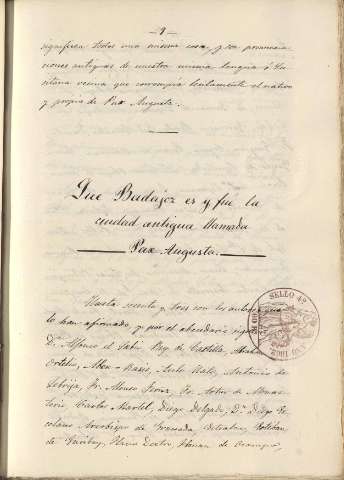 — 9 —
significa todos una misma cosa, y son pronuncia-
ciones antiguas de nuestra misma lengua ó Lu-
sitana vecina que corrompia lentamente el nativo
y propio de Pax Augusta.
Que Badajoz es y fue la
ciudad antigua llamada
Pax Augusta.
Hasta sesenta y tres son los autores que
lo han afirmado y por el abecedario
D.ⁿ Alfonso el Sabio Rey de Castilla,
Ortelio, Aben-Rasis, Antonio de
Lebrija, Fr. Alonso Fr.
Carlos Martel, Diego Delgado, D.ⁿ Diego Es-
colano Arzobispo de Granada, Esteban
de Garibay, Florian de Ocampo,
SELLO 4º